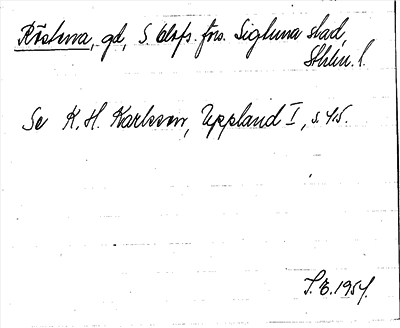 Röstuna, gd, S. Olofs förs. Sigtuna stad,
Sthlm. l.
Se K. H. Karlsson, Uppland I, s. 45.
1954.